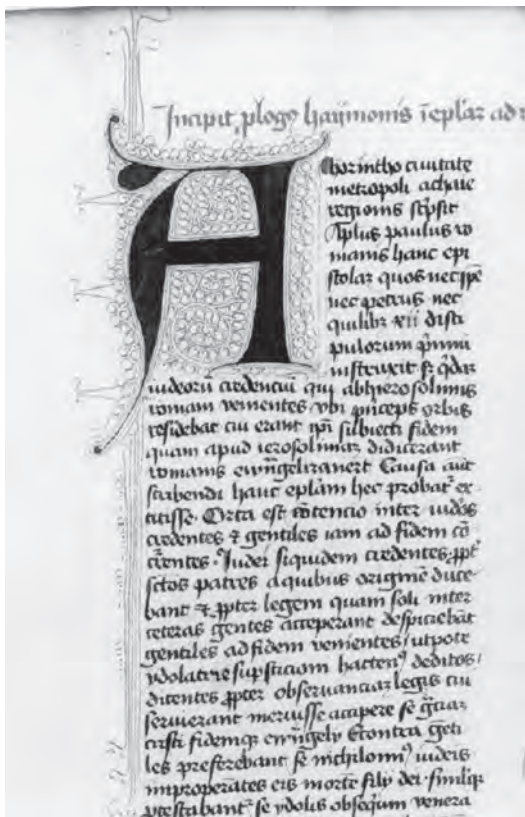 Incipit plogꝯ haymonis ī eplar̄ ad r
A Chorintho ciuitate
metropoli achaie
regionis scͥpsit
Aplus̄ paulus ro
manis hanc epi
stolaꝫ quos nec ip̄e
nec petrus nec
quilibꝫ xii disci
pulorum pͥmū
instruxit sꝫ qͥdaꝫ
iudeoꝝ credenciū qui abhierosolimis
romam venientes vbi pͥnceps orbis
residebat cui erant ip̄i subiecti fidem
quam apud ierosolimaꝫ didicerant
romanis ewangelizauerūt Causa aūt
scͥbendi hanc eplām hec probatͬ ex
titisse. Orta est cōtencio inter iudeos
credentes ⁊ gentiles iam ad fidem cō
credentes. Iudei siquidem credentes ꝓpt̄
sc̄tos patres a quibus originē duce
bant ⁊ ꝓpter legem quam soli inter
ceteras gentes acceperant despiciebāt
gentiles ad fidem venientes / utpote
ydolatrie supsticioni hactenꝯ deditos /
dicentes ꝓpter obseruanciaꝫ legis cui
seruierant meruisse accipere se gͣciaꝫ
cristi fidemqꝫ ewangely Econtra gēti
les preferebant se nichilominꝯ iudeis
improperātes eis mortē fily dei. similiqꝫ
ptestabantͬ se ydolis obsequium venera